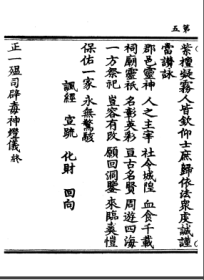 五 第
紫檀凝霧人皆欽仰士庶歸依法衆虔誠謹
當讚詠
郡邑靈神 人之主宰 社令城隍 血食千載
祠廟靈祇 名彰英彩 亘古名賢 周遊四海
一方祭祀 豈容有敗 願回洞鑒 來臨羙禮
保佑一家 永無驚駭
諷經 宣疏 化財 回向
正一殟司辟毒神燈儀終